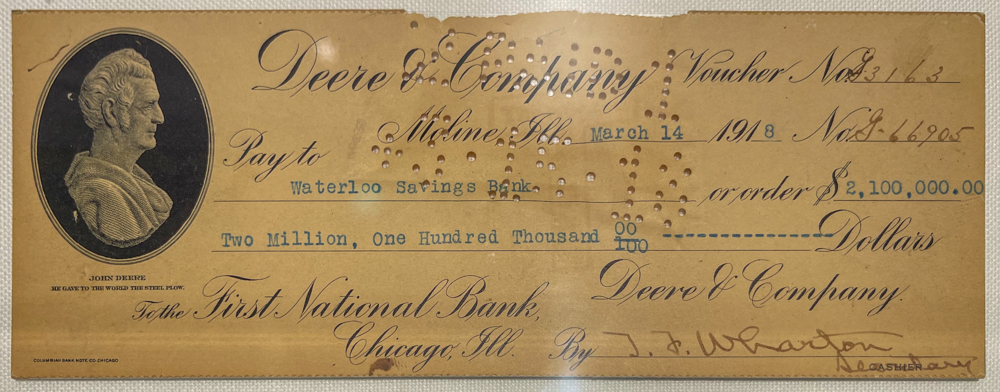 Deere & Company Voucher No. G3163
Moline, Ill. March 14 1918 No. G-66905
Pay to
Waterloo Savings Bank or order $2,100,000.00
Two Million, One Hundred Thousand 00/100 --------------- Dollars
JOHN DEERE
HE GAVE TO THE WORLD THE STEEL PLOW.
To the First National Bank, Deere & Company.
Chicago, Ill. By T. F. Wharton
COLUMBIAN BANK NOTE CO. CHICAGO
CASHIER
Secretary